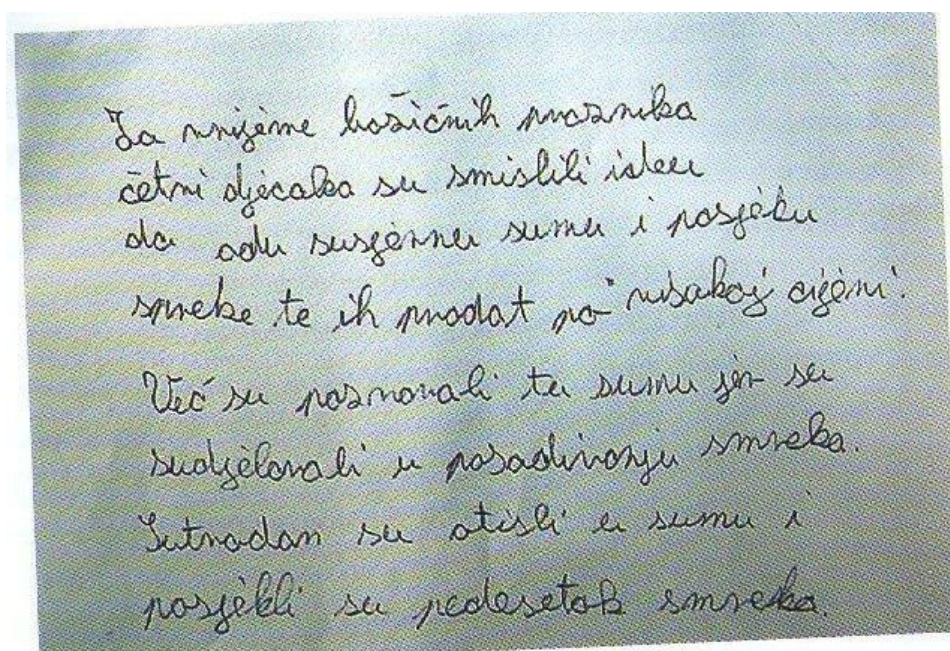 Za vrijeme božićnih praznika
četri dječaka su smislili ideu
da odu susjennu sumu i posjeku
smreke te ih prodat po visokoj cijeni.
Već su poznavali tu sumu jer su
sudjelovali u posađivanju smreka.
Sutradan su otisli u sumu i
posjekli su pedesetak smreka.